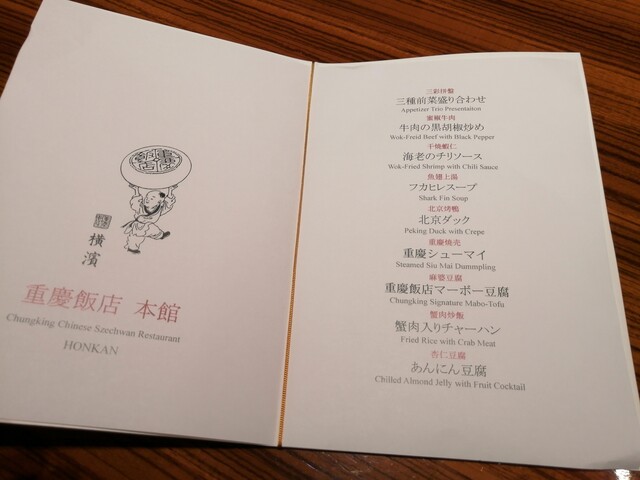 横濱
重慶飯店 本館
Chungking Chinese Szechwan Restaurant
HONKAN
三彩拼盤
三種前菜盛り合わせ
Appetizer Trio Presentaiton
蜜椒牛肉
牛肉の黒胡椒炒め
Wok-Freid Beef with Black Pepper
干焼蝦仁
海老のチリソース
Wok-Fried Shrimp with Chili Sauce
魚翅上湯
フカヒレスープ
Shark Fin Soup
北京烤鴨
北京ダック
Peking Duck with Crepe
重慶焼売
重慶シューマイ
Steamed Siu Mai Dummpling
麻婆豆腐
重慶飯店マーボー豆腐
Chungking Signature Mabo-Tofu
蟹肉炒飯
蟹肉入りチャーハン
Fried Rice with Crab Meat
杏仁豆腐
あんにん豆腐
Chilled Almond Jelly with Fruit Cocktail